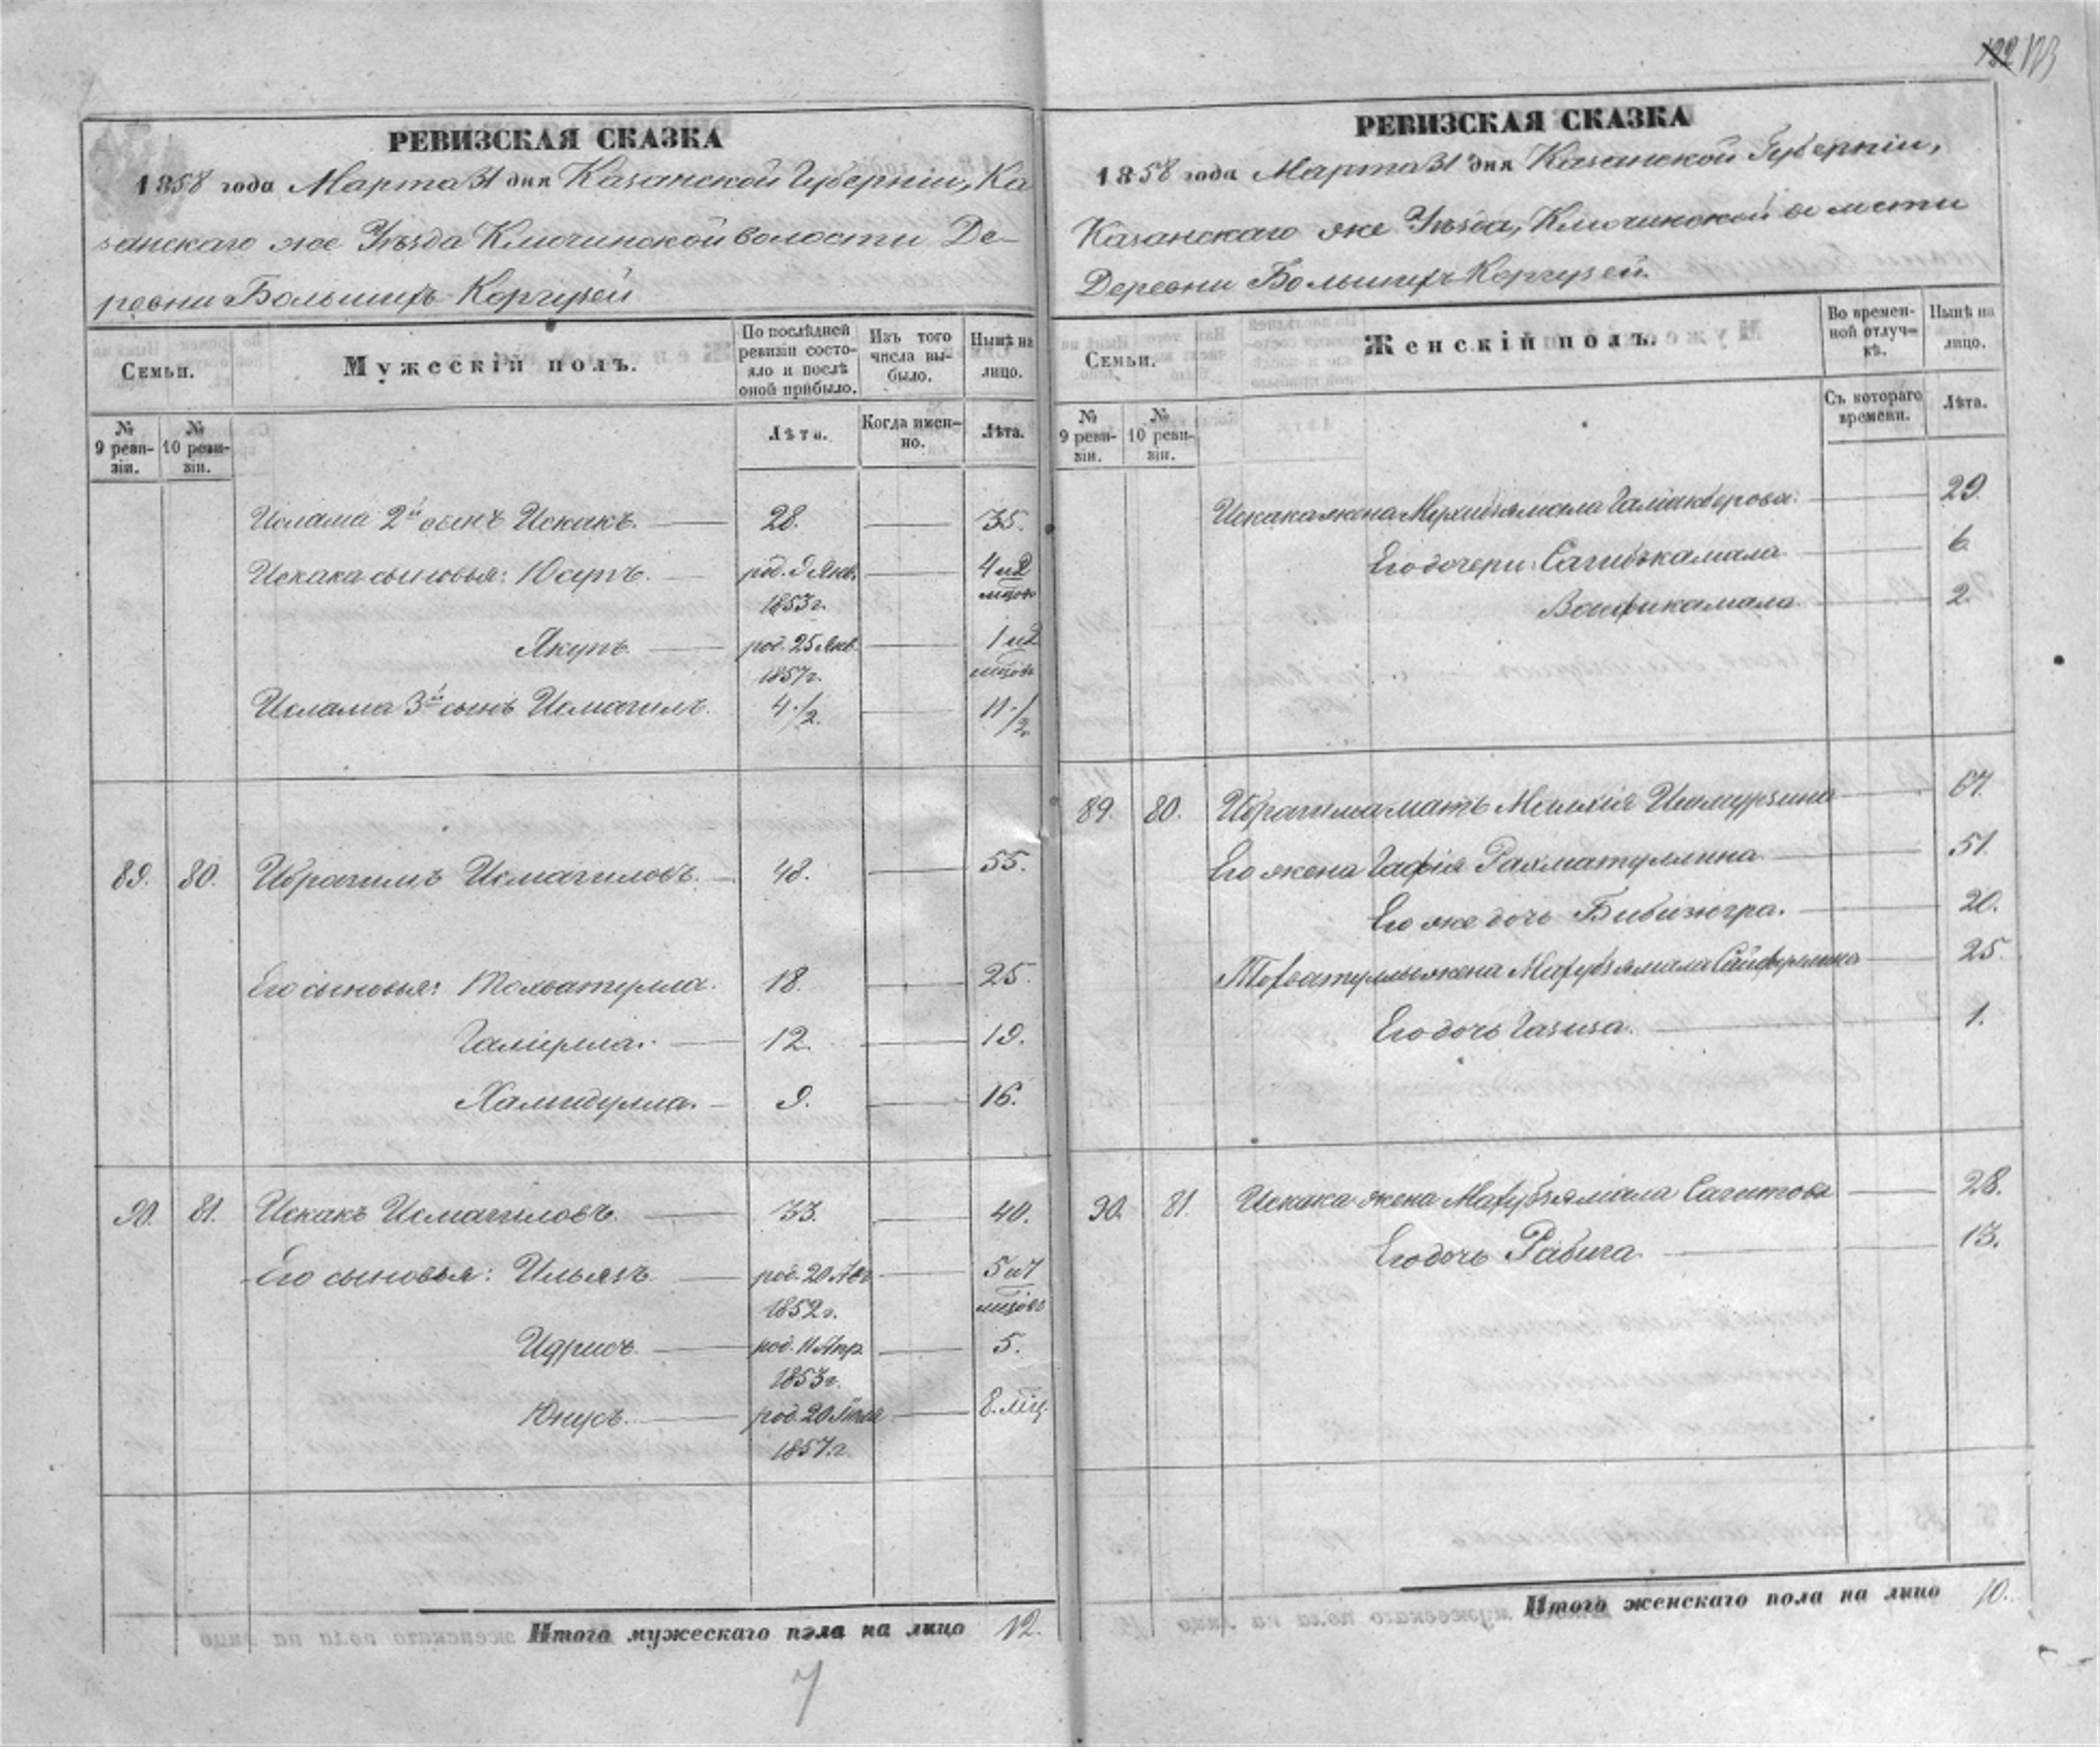 123
РЕВИЗСКАЯ СКАЗКА
1858 года Марта 31 дня Казанской Губерніи, Ка
занскаго же Уѣзда Ключинской волости Де-
ревни Большихъ Коргузей
Семьи.
Мужескій полъ.
По послѣдней ревизіи состояло и послѣ оной прибыло.
Изъ того числа выбыло.
Нынѣ на лицо.
№ 9 ревизіи.
№ 10 ревизіи.
Лѣта.
Когда именно.
Лѣта.
Ислама 2й сынъ Искакъ. 28. 35.
Искака сыновья: Юсупъ. род. 9 Янв. 1853 г. 4 и 2 мцовъ
Якупъ. род. 25 Янв. 1857 г. 1 и 2 мцовъ
Ислама 3й сынъ Исмагилъ. 4 1/2. 11 1/2.
89. 80. Ибрагимъ Исмагиловъ. 48. 55.
Его сыновья: Тохватулла. 18. 25.
12. 19.
Хамидулла. 9. 16.
90. 81. Искакъ Исмагиловъ. 33. 40.
Его сыновья: Ильязъ род. 20 Авг 1852 г. 5 и 7 мцовъ
Идрисъ род. 11 Апр. 1853 г. 5.
Юнусъ. род. 20 Іюля 1857 г. 8. мц.
Итого мужескаго пола на лицо 12.
7
РЕВИЗСКАЯ СКАЗКА
1858 года Марта 31 дня Казанской Губерніи,
Казанскаго же Уѣзда, Ключинской волости
Деревни Большихъ Коргузей.
Семьи.
Женскій полъ.
Во временной отлучкѣ.
Нынѣ на лицо.
№ 9 ревизіи.
№ 10 ревизіи.
Съ котораго времени.
Лѣта.
Искака жена Галіакберова. 29.
Его дочери: Сагибъкамала 6.
2.
89. 80. Ибрагима мать Ишмурзина 67.
Его жена Гафія Рахматуллина 51.
Его же дочь Бибизюгра. 20.
Тохватуллы жена Махубзямала Сайфуллина 25.
Его дочь Газиза. 1.
90. 81. Искака жена Махубзямала Сагитова 28.
Его дочь Рабига 13.
Итого женскаго пола на лицо 10.